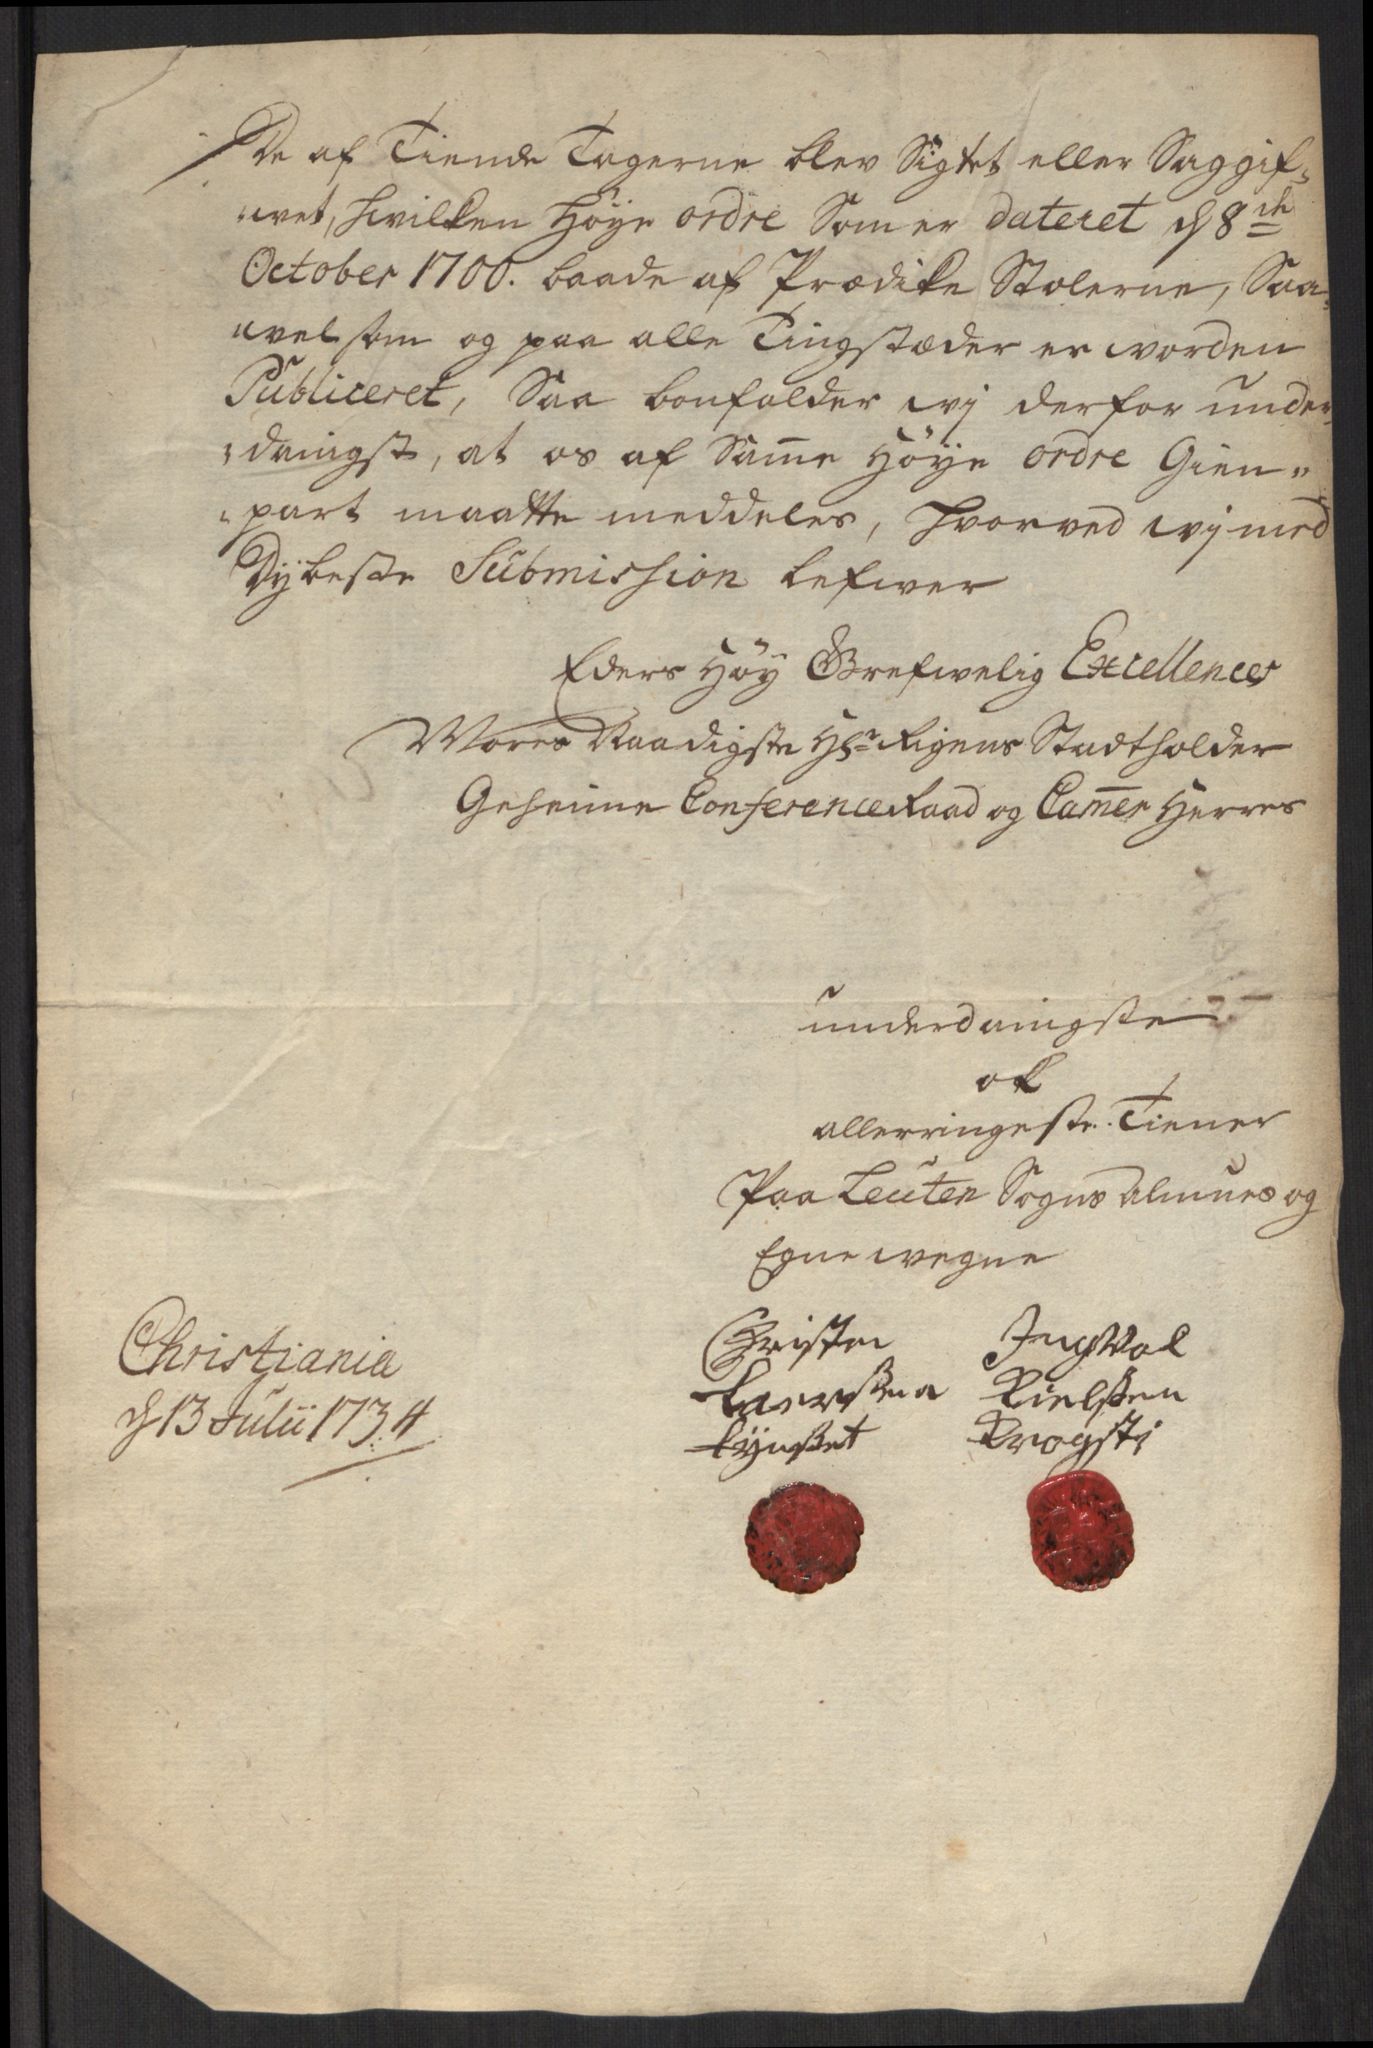 De af Tiende Tagerne blev Sigtet eller Saggif-
"wet, hwilken Höye ordre Som er dateret d 8de
October 1700. baade af Prædike Stolerne, Saa-
"vel som og paa alle Tingstæder er worden
Publiceret, Saa bonfalder wj derfor under-
"danigst, at os af Same Höye ordre Gien-
"part maatte meddeles, hvorved wj med
Dybeste Submission lefwer
Eders Höy Grefwelig Excellences
Wores Naadigste Hr Rigens Stadtholder
Geheime Conference Raad og Camer Herres
underdanigste
ok
allerringeste Tiener
Paa Leuten Sogns Almues og
Egne wegne
Christiania
d 13 Julii 1734
Christen Ingwol
Laursen Nielsen
Lynset Krogsti